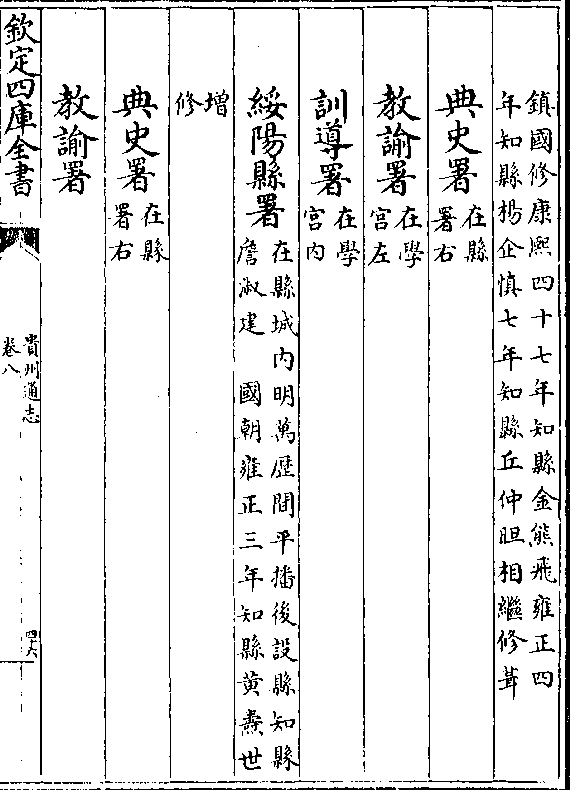 鎮國修康熙四十七年知縣金熊飛雍正四
年知縣楊企慎七年知縣丘仲䏔相繼修葺
典史署在縣
署右
教諭署在學
宮左
訓導署在學
宮内
綏陽縣署在縣城内明萬歷間平播後設縣知縣
詹淑建　國朝雍正三年知縣黄燾世
增
修
典史署在縣
署右
教諭署
欽定四庫全書
貴州通志
卷八
四六